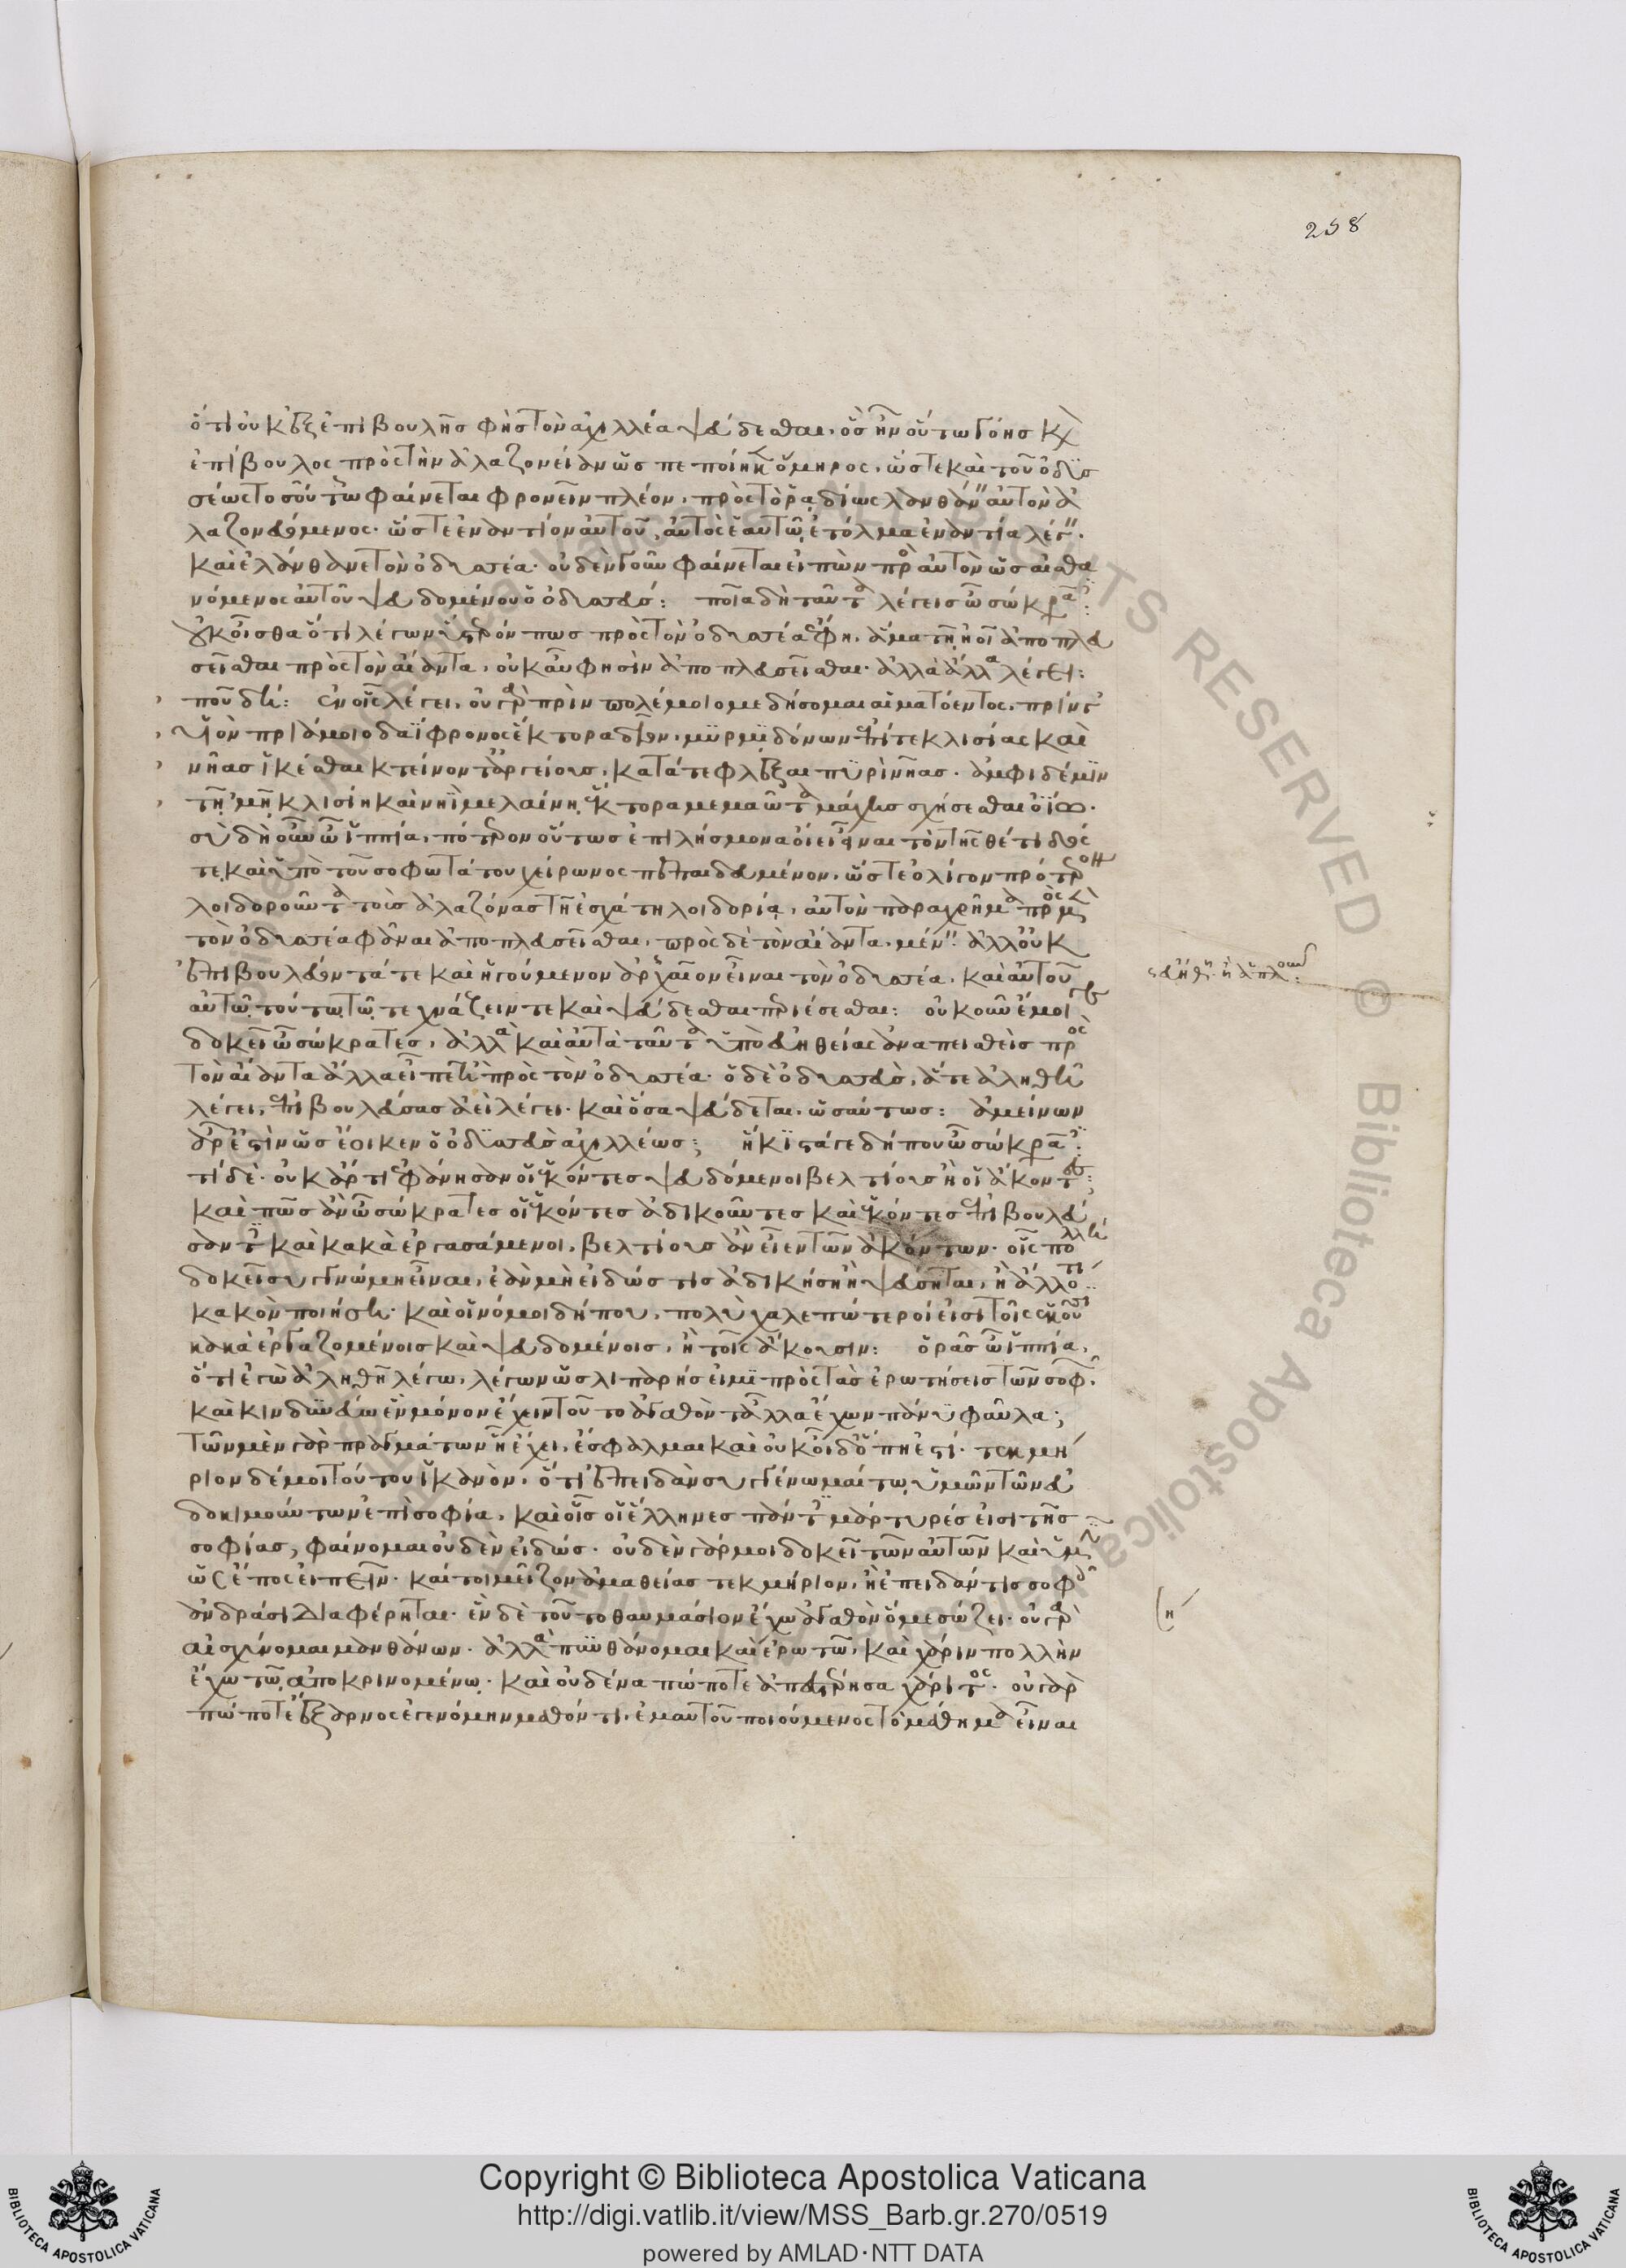 ὅτι οὐκ ἐξ ἐπιβουλῆς φῂς τὸν ἀχιλλέα ψεύδεσθαι, ὃς ἦν οὕτω γόης καὶ
ἐπίβουλος πρὸς τὴν ἀλαζονείαν ὡς πεποίηκεν ὅμηρος, ὥστε καὶ τοῦ ὀδυσ
σέως τοσοῦτον φαίνεται φρονεῖν πλέον, πρὸς τὸ ῥᾳδίως λανθάνειν αὐτὸν ἀ
λαζονευόμενος· ὥστε ἐναντίον αὐτοῦ, αὐτὸς ἑαυτῷ ἐτόλμα ἐναντία λέγειν·
καὶ ἐλάνθανε τὸν ὀδυσσέα· οὐδὲν γοῦν φαίνεται εἰπὼν πρὸς αὐτὸν ὡς αἰσθα
νόμενος αὐτοῦ ψευδομένου ὁ ὀδυσσεύς: ποῖα δὴ ταῦτα λέγεις ὦ σώκρατες:
οὐκ οἶσθα ὅτι λέγων ὕστερόν πως πρὸς τὸν ὀδυσσέα ἔφη, ἅμα τῇ ἠοῖ ἀποπλευ
σεῖσθαι πρὸς τὸν αἴαντα, οὐκ αὖ φησὶν ἀποπλευσεῖσθαι· ἀλλὰ ἄλλα λέγει:
ποῦ δεῖ: ἐν οἷς λέγει, οὐ γὰρ πρὶν πολέμοιο μεδήσομαι αἱματόεντος, πρίν γ'
υἱὸν πριάμοιο δαΐφρονος ἕκτορα δῖον, μυρμιδόνων ἐπί τε κλισίας καὶ
νῆας ἱκέσθαι κτείνοντ' ἀργείους, κατά τε φλέξαι πυρὶ νῆας. ἀμφὶ δέ μιν
τῇ 'μῇ κλισίῃ καὶ νηῒ μελαίνῃ ἕκτορα μεμαῶτα μάχης σχήσεσθαι ὀΐω.
σὺ δὴ οὖν ὦ ἱππία, πότερον οὕτως ἐπιλήσμονα οἴει εἶναι τὸν τῆς θέτιδός
τε καὶ ὑπὸ τοῦ σοφωτάτου χείρωνος πεπαιδευμένον, ὥστε ὀλίγον πρότερον
λοιδοροῦντα τοὺς ἀλαζόνας τῇ ἐσχάτῃ λοιδορίᾳ, αὐτὸν παραχρῆμα πρὸς μὲν
τὸν ὀδυσσέα φάναι ἀποπλευσεῖσθαι, πρὸς δὲ τὸν αἴαντα, μένειν· ἀλλ' οὐκ
ἐπιβουλεύοντά τε καὶ ἡγούμενον ἀρχαῖον εἶναι τὸν ὀδυσσέα, καὶ αὐτοῦ
αὐτῷ τούτῳ τῷ τεχνάζειν τε καὶ ψεύδεσθαι περιέσεσθαι: οὔκουν ἔμοιγε
δοκεῖ ὦ σώκρατες, ἀλλὰ καὶ αὐτὰ ταῦτα ὑπὸ εὐηθείας ἀναπεισθεὶς πρὸς
τὸν αἴαντα ἄλλα εἶπεν ἢ πρὸς τὸν ὀδυσσέα· ὁ δὲ ὀδυσσεύς, ἅ τε ἀληθῆ
λέγει, ἐπιβουλεύσας ἀεὶ λέγει· καὶ ὅσα ψεύδεται, ὡσαύτως: ἀμείνων
ἄρ' ἐστὶν ὡς ἔοικεν ὁ ὀδυσσεὺς ἀχιλλέως: ἥκιστά γε δήπου ὦ σώκρατες:
τί δέ· οὐκ ἄρτι ἐφάνησαν οἱ ἑκόντες ψευδόμενοι βελτίους ἢ οἱ ἄκοντες:
καὶ πῶς ἂν ὦ σώκρατες οἱ ἑκόντες ἀδικοῦντες καὶ ἑκόντες ἐπιβουλεύ
σαντες καὶ κακὰ ἐργασάμενοι, βελτίους ἂν εἶεν τῶν ἀκόντων· οἷς πολλὴ
δοκεῖ συγγνώμη εἶναι, ἐὰν μὴ εἰδώς τις ἀδικήσῃ ἢ ψεύσηται, ἢ ἄλλο τι
κακὸν ποιήσῃ· καὶ οἱ νόμοι δήπου, πολὺ χαλεπώτεροί εἰσι τοῖς ἑκοῦσι
κακὰ ἐργαζομένοις καὶ ψευδομένοις, ἢ τοῖς ἄκουσιν: ὁρᾷς ὦ ἱππία,
ὅτι ἐγὼ ἀληθῆ λέγω, λέγων ὡς λιπαρής εἰμι πρὸς τὰς ἐρωτήσεις τῶν σοφῶν·
καὶ κινδυνεύω ἓν μόνον ἔχειν τοῦτο ἀγαθὸν τἆλλα ἔχων πάνυ φαῦλα;
τῶν μὲν γὰρ πραγμάτων ᾗ ἔχει, ἔσφαλμαι καὶ οὐκ οἶδ' ὅπῃ ἐστί. τεκμή
ριον δέ μοι τούτου ἱκανὸν, ὅτι ἐπειδὰν συγγένωμαί τῳ ὑμῶν τῶν εὐ
δοκιμούντων ἐπὶ σοφίᾳ, καὶ οἷς οἱ ἕλληνες πάντες μάρτυρές εἰσι τῆς
σοφίας, φαίνομαι οὐδὲν εἰδώς· οὐδὲν γάρ μοι δοκεῖ τῶν αὐτῶν καὶ ὑμῖν
ὡς ἔπος εἰπεῖν· καί τοι μεῖζον ἀμαθείας τεκμήριον, ἢ ἐπειδάν τις σοφοῖς
ἀνδράσι διαφέρηται. ἓν δὲ τοῦτο θαυμάσιον ἔχω ἀγαθὸν ὅ με σώζει· οὐ γὰρ
αἰσχύνομαι μανθάνων· ἀλλὰ πυνθάνομαι καὶ ἐρωτῶ, καὶ χάριν πολλὴν
ἔχω τῷ ἀποκρινομένῳ. καὶ οὐδένα πώποτε ἀπεστέρησα χάριτος· οὐ γὰρ
πώποτε ἔξαρνος ἐγενόμην μαθόν τι, ἐμαυτοῦ ποιούμενος τὸ μάθημα εἶναι
258